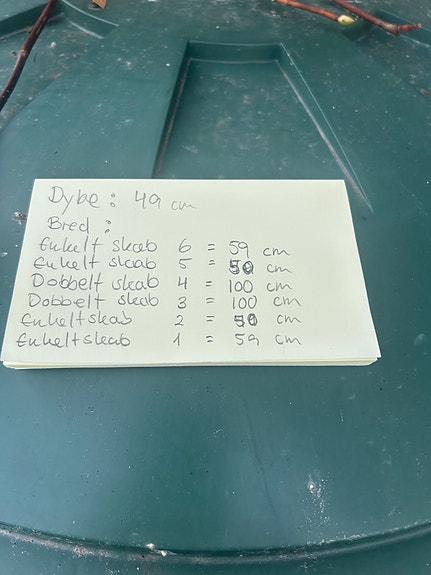 Dybe : 49 cm
Bred :
Enkelt skab 6 = 59 cm
Enkelt skab 5 = 50 cm
Dobbelt skab 4 = 100 cm
Dobbelt skab 3 = 100 cm
Enkeltskab 2 = 50 cm
Enkeltskab 1 = 59 cm